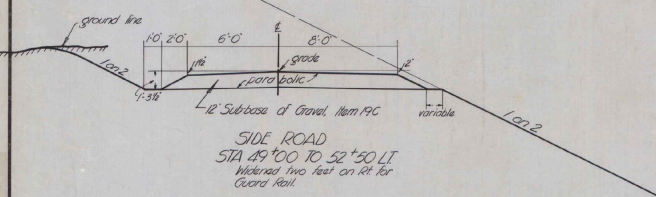 ground line
1'-0" 2'-0" 6'-0" 8'-0"
℄
1½" grade 2"
1 on 2
parabolic
1'-3½"
12" Sub-base of Gravel, Item 19C
variable
1 on 2
SIDE ROAD
STA 49+00 TO 52+50 LT.
Widened two feet on Rt. for
Guard Rail.